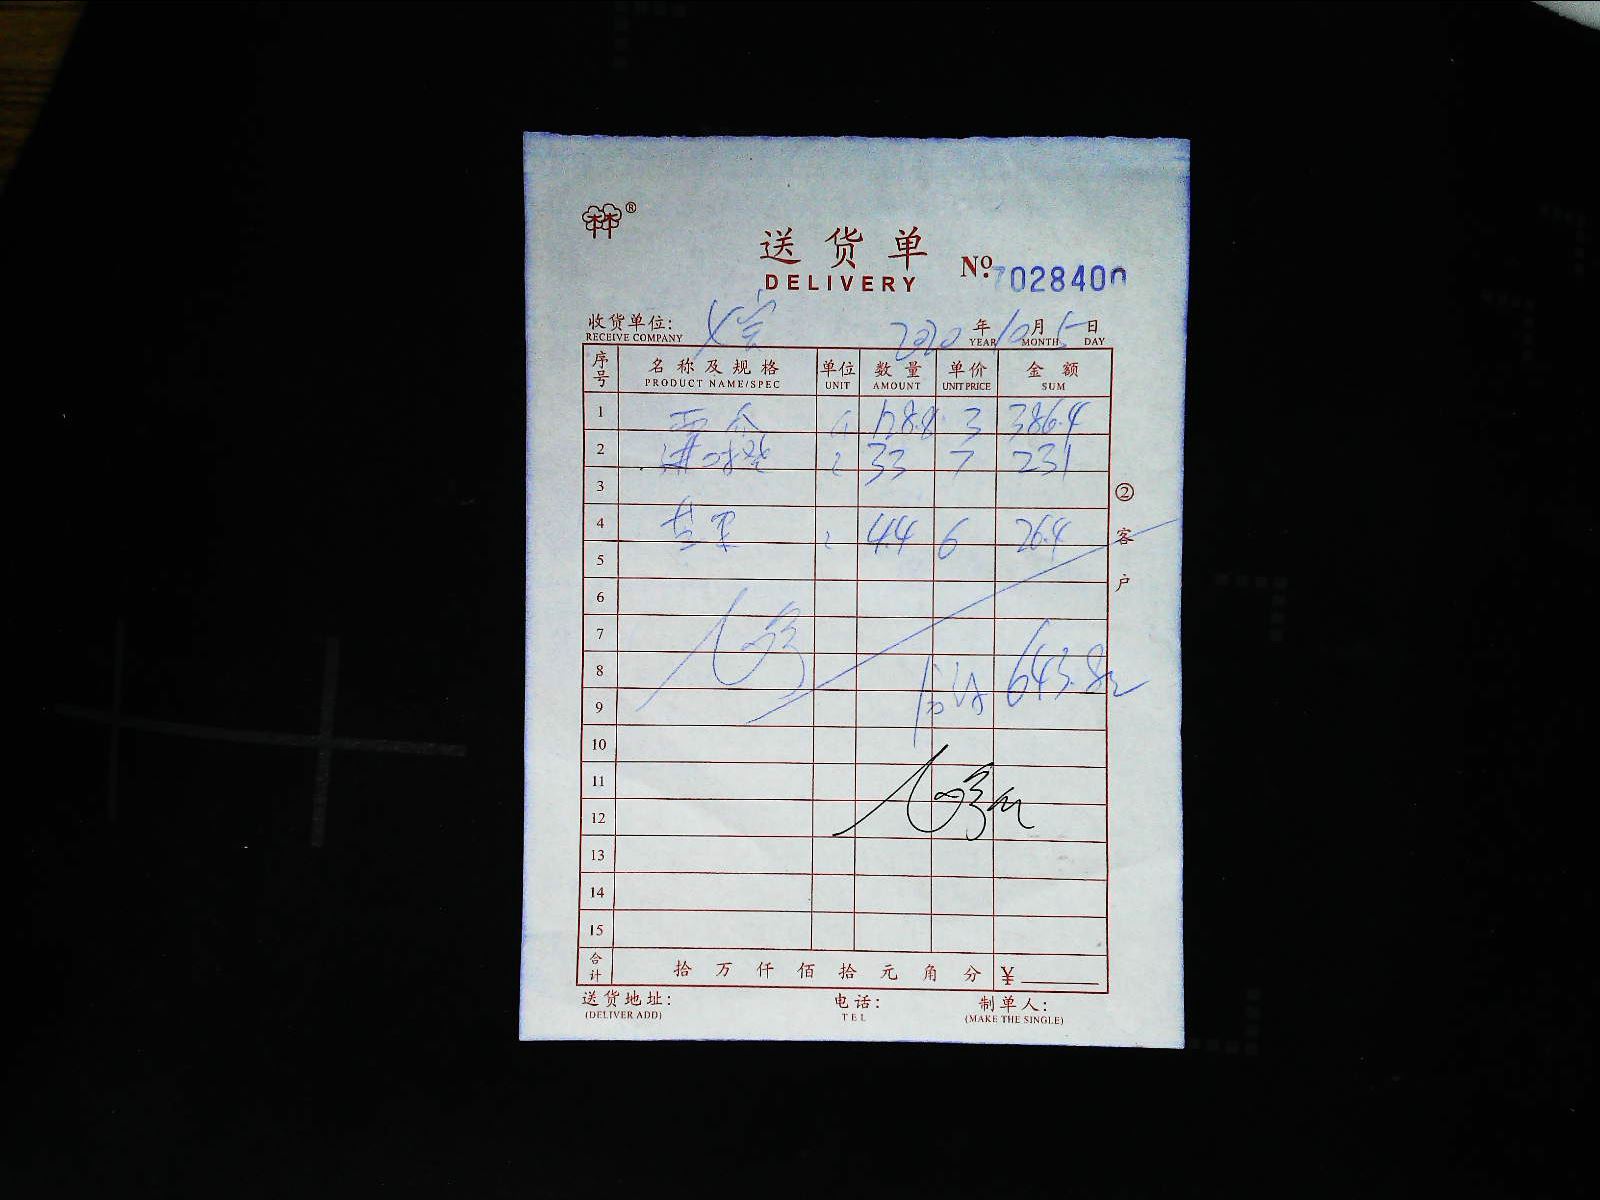 ®
送货单
DELIVERY
No. 7028400
收货单位:
RECEIVE COMPANY
2020 年 10 月 5 日
YEAR MONTH DAY
序号 名称及规格 单位 数量 单价 金额
PRODUCT NAME/SPEC UNIT AMOUNT UNIT PRICE SUM
1 128.8 3 386.4
2 33 7 231
3
4 苹果 4.4 6 26.4
5
6
7
8 合计 643.8元
9
10
11
12
13
14
15
合计 拾 万 仟 佰 拾 元 角 分 ¥
②客户
送货地址: 电话: 制单人:
(DELIVER ADD) TEL (MAKE THE SINGLE)